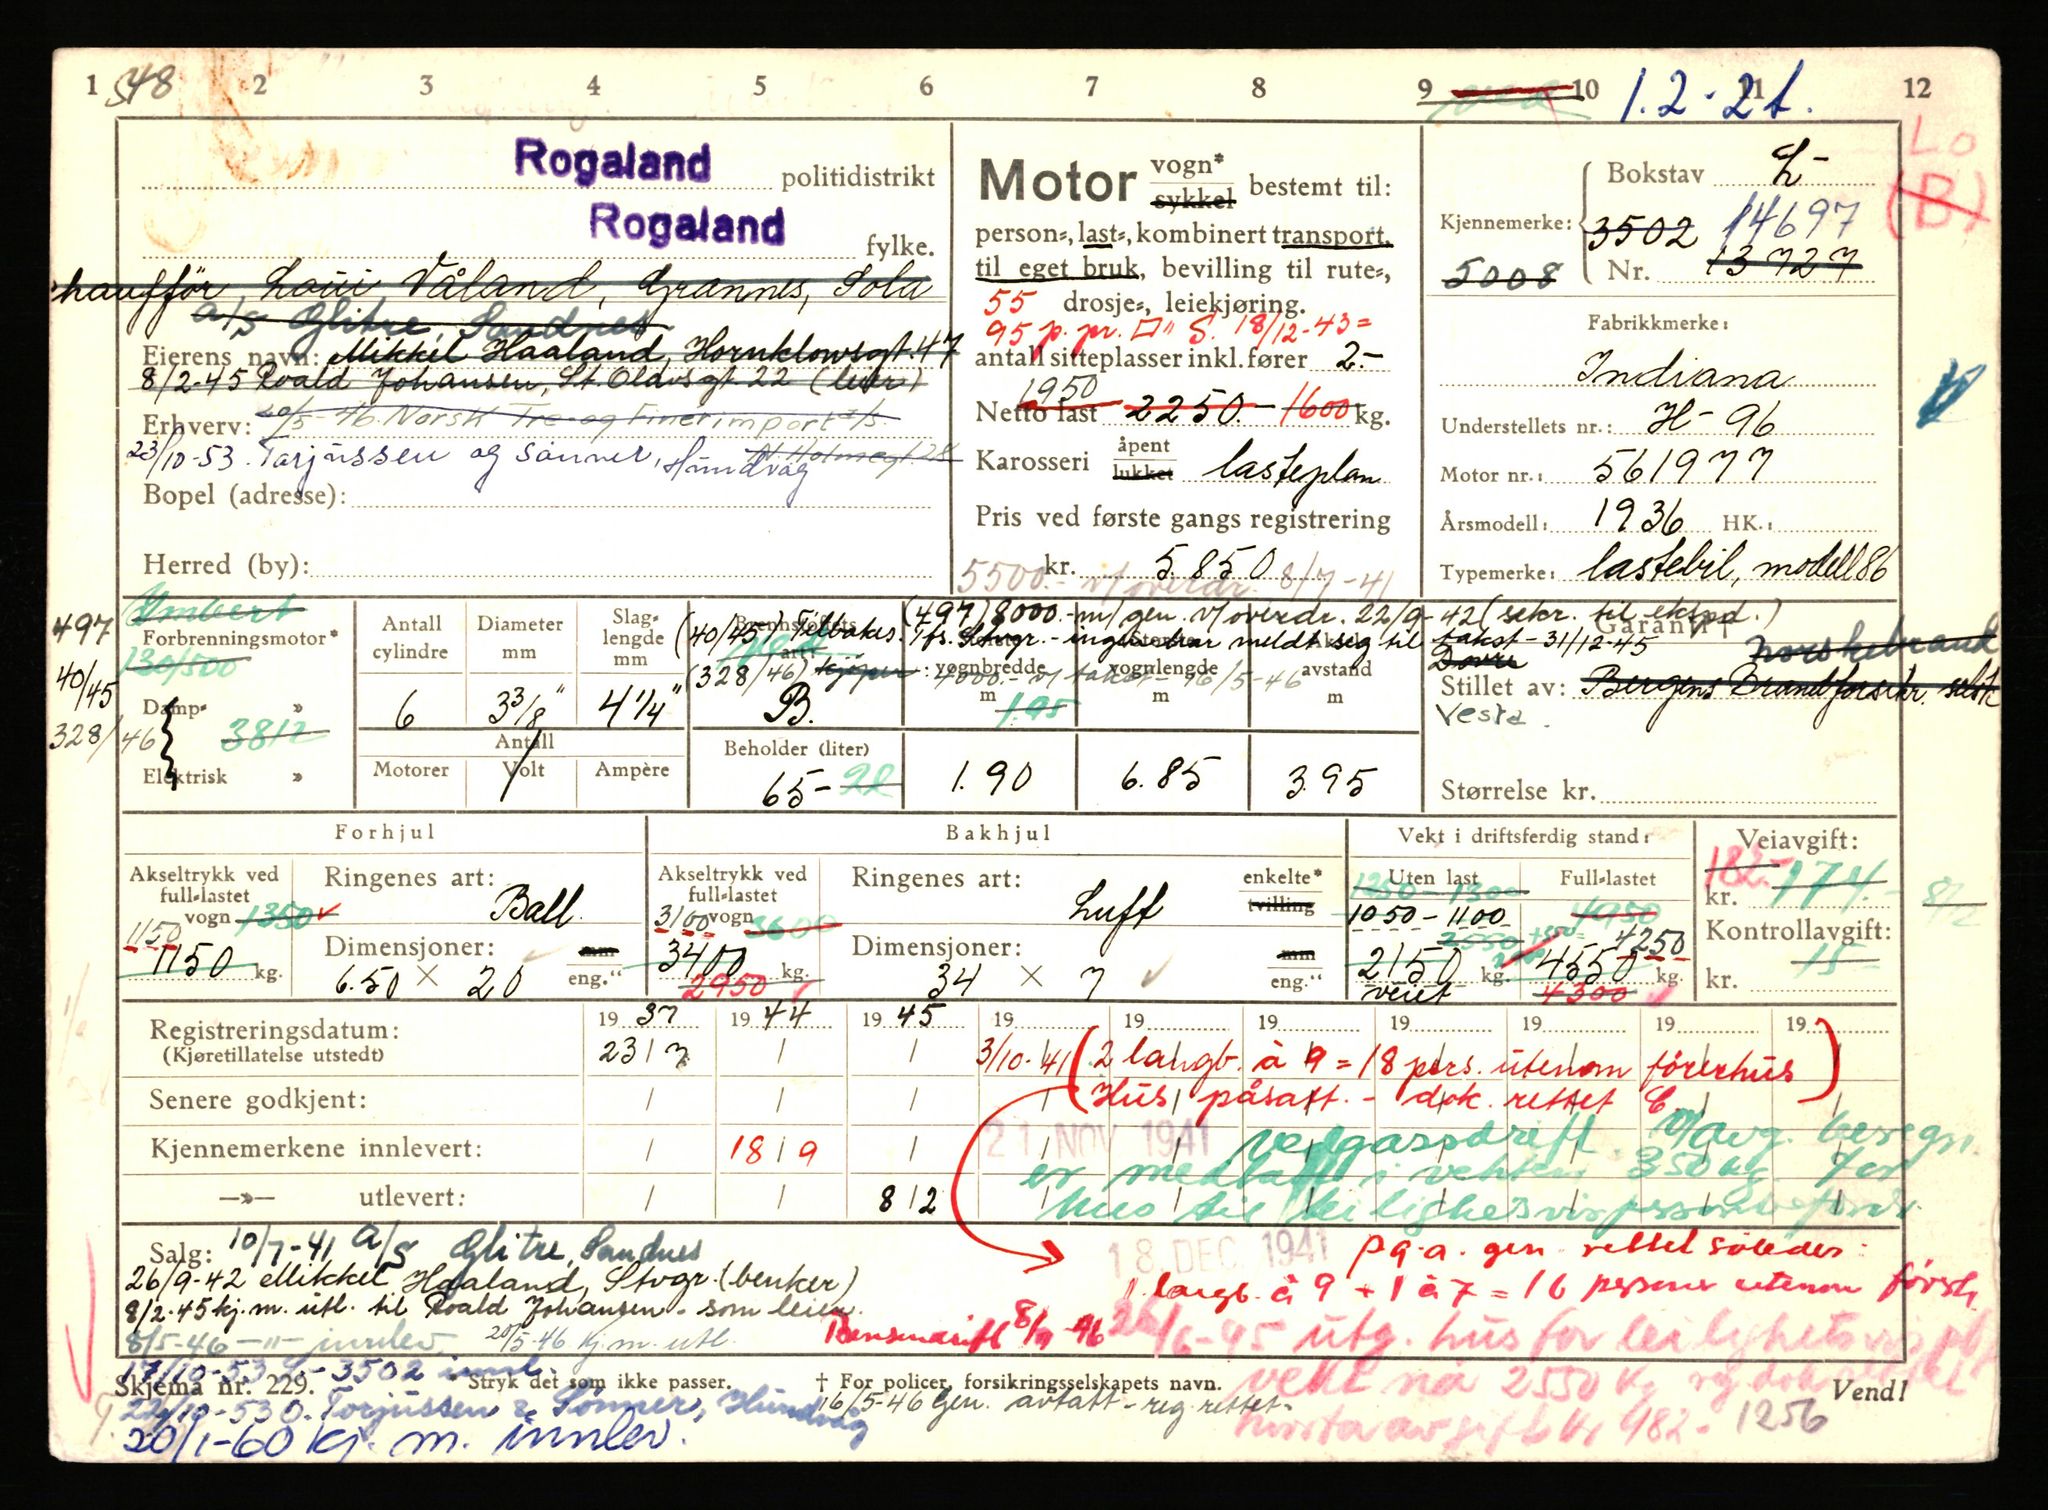 1 2 3 4 5 6 7 8 9 10 11 12
548
1.2-2t.
Rogaland politidistrikt
Rogaland fylke.
Våland, Grannes, Sola
A/S Glitre, Sandnes
Eierens navn: Mikkel Haaland, Hornklowsgt. 47
8/2-45 Roald Johansen, St. Olavsgt 22 (leier)
Erhverv: 20/5-46 Norsk Tre- og Finerimport A/S
23/10-53. Torjussen og sønner, Hundvåg
Bopel (adresse):
Herred (by):
Motor vogn* sykkel bestemt til:
person-, last-, kombinert transport,
til eget bruk, bevilling til rute-,
55 drosje-, leiekjøring.
95 p. pr. S. 18/12-43=
antall sitteplasser inkl. fører 2.-
1950
Netto last 2250.- 1600 kg.
Karosseri åpent lukket lasteplan
Pris ved første gangs registrering
kr. 5.850
5500.- v/overdr. 8/7-41
Lo
(B)
Kjennemerke: Bokstav L-
3502 14697
5008 Nr. 13727
Fabrikkmerke:
Indiana
Understellets nr.: H-96
Motor nr.: 561977
Årsmodell: 1936 HK.:
Typemerke: lastebil, modell 86
497
40/45
328/46
Imbert
Forbrenningsmotor*
130/500
Damp- »
3812
Elektrisk »
Antall cylindre 6
Diameter mm 3 3/8"
Slaglengde mm 4 1/4"
Antall
Motorer Volt Ampère
(497) 8000.- m/gen. v/overdr. 22/9-42 (sekr. til eksp.)
(40/45) Tilbakes. fs. Stvgr. - ingen har meldt sig til takst - 31/12-45
(328/46) 4000.- v/takst - 16/5-46
Brenstoffets art: B.
Beholder (liter) 65-
vognbredde m 1.95
1.90
vognlengde m
6.85
avstand m
3.95
Garanti †
Dovre Norskebrand
Stillet av: Bergens Brandforsikr. selsk
Vesta.
Størrelse kr.
Forhjul
Akseltrykk ved full-lastet vogn 1350
1150
1150 kg.
Ringenes art: Ball.
Dimensjoner: mm
6.50 × 20 eng."
Bakhjul
Akseltrykk ved full-lastet vogn 3600
3100
3400 kg.
2950
Ringenes art: Luft enkelte* tvilling
Dimensjoner: mm
34 × 7 eng."
Vekt i driftsferdig stand:
Uten last
1250-1300
1050-1100
2550
2150 kg.
veiet
Full-lastet
4950
4250
4550 kg.
4300
Veiavgift:
182.-
kr. 174.-
8/2
Kontrollavgift:
kr. 15-
Registreringsdatum: 1937 1944 1945 19 19 19 19 19 19 19
(Kjøretillatelse utstedt) 23/7
3/10-41 (2 langb. à 9 = 18 pers. utenom førerhus)
Senere godkjent:
(Hus påsatt. - dok. rettet)
Kjennemerkene innlevert: 18/9
21 NOV. 1941
vedgassdrift. v/avg. beregn.
er medtatt i vekten 350 kg. for
-»- utlevert: 8/2
hus til leilighetsvis persontransport
18. DEC. 1941
p g. a. gen. rettet således:
1 langb. à 9 + 1 à 7 = 16 personer utenom førerh.
Salg: 10/7-41 A/S Glitre, Sandnes
26/9-42 Mikkel Haaland, Stvgr. (benker)
8/2-45 kj.m. utl. til Roald Johansen - som leier.
8/5-46 -"- innlev. 20/5-46 kj.m. utl.
Bensindrift 8/4-46
26/6-45 utg. hus for leilighetsvis
vekt nå 2550 kg
17/10-53 L-3502 innl.
Skjema nr. 229. * Stryk det som ikke passer. † For policer, forsikringsselskapets navn. Vend!
16/5-46 Gen. avtatt - reg. rettet.
Torjussen & Sønner, Hundvåg
20/1-60 kj. m. innlev.
982.-
1256